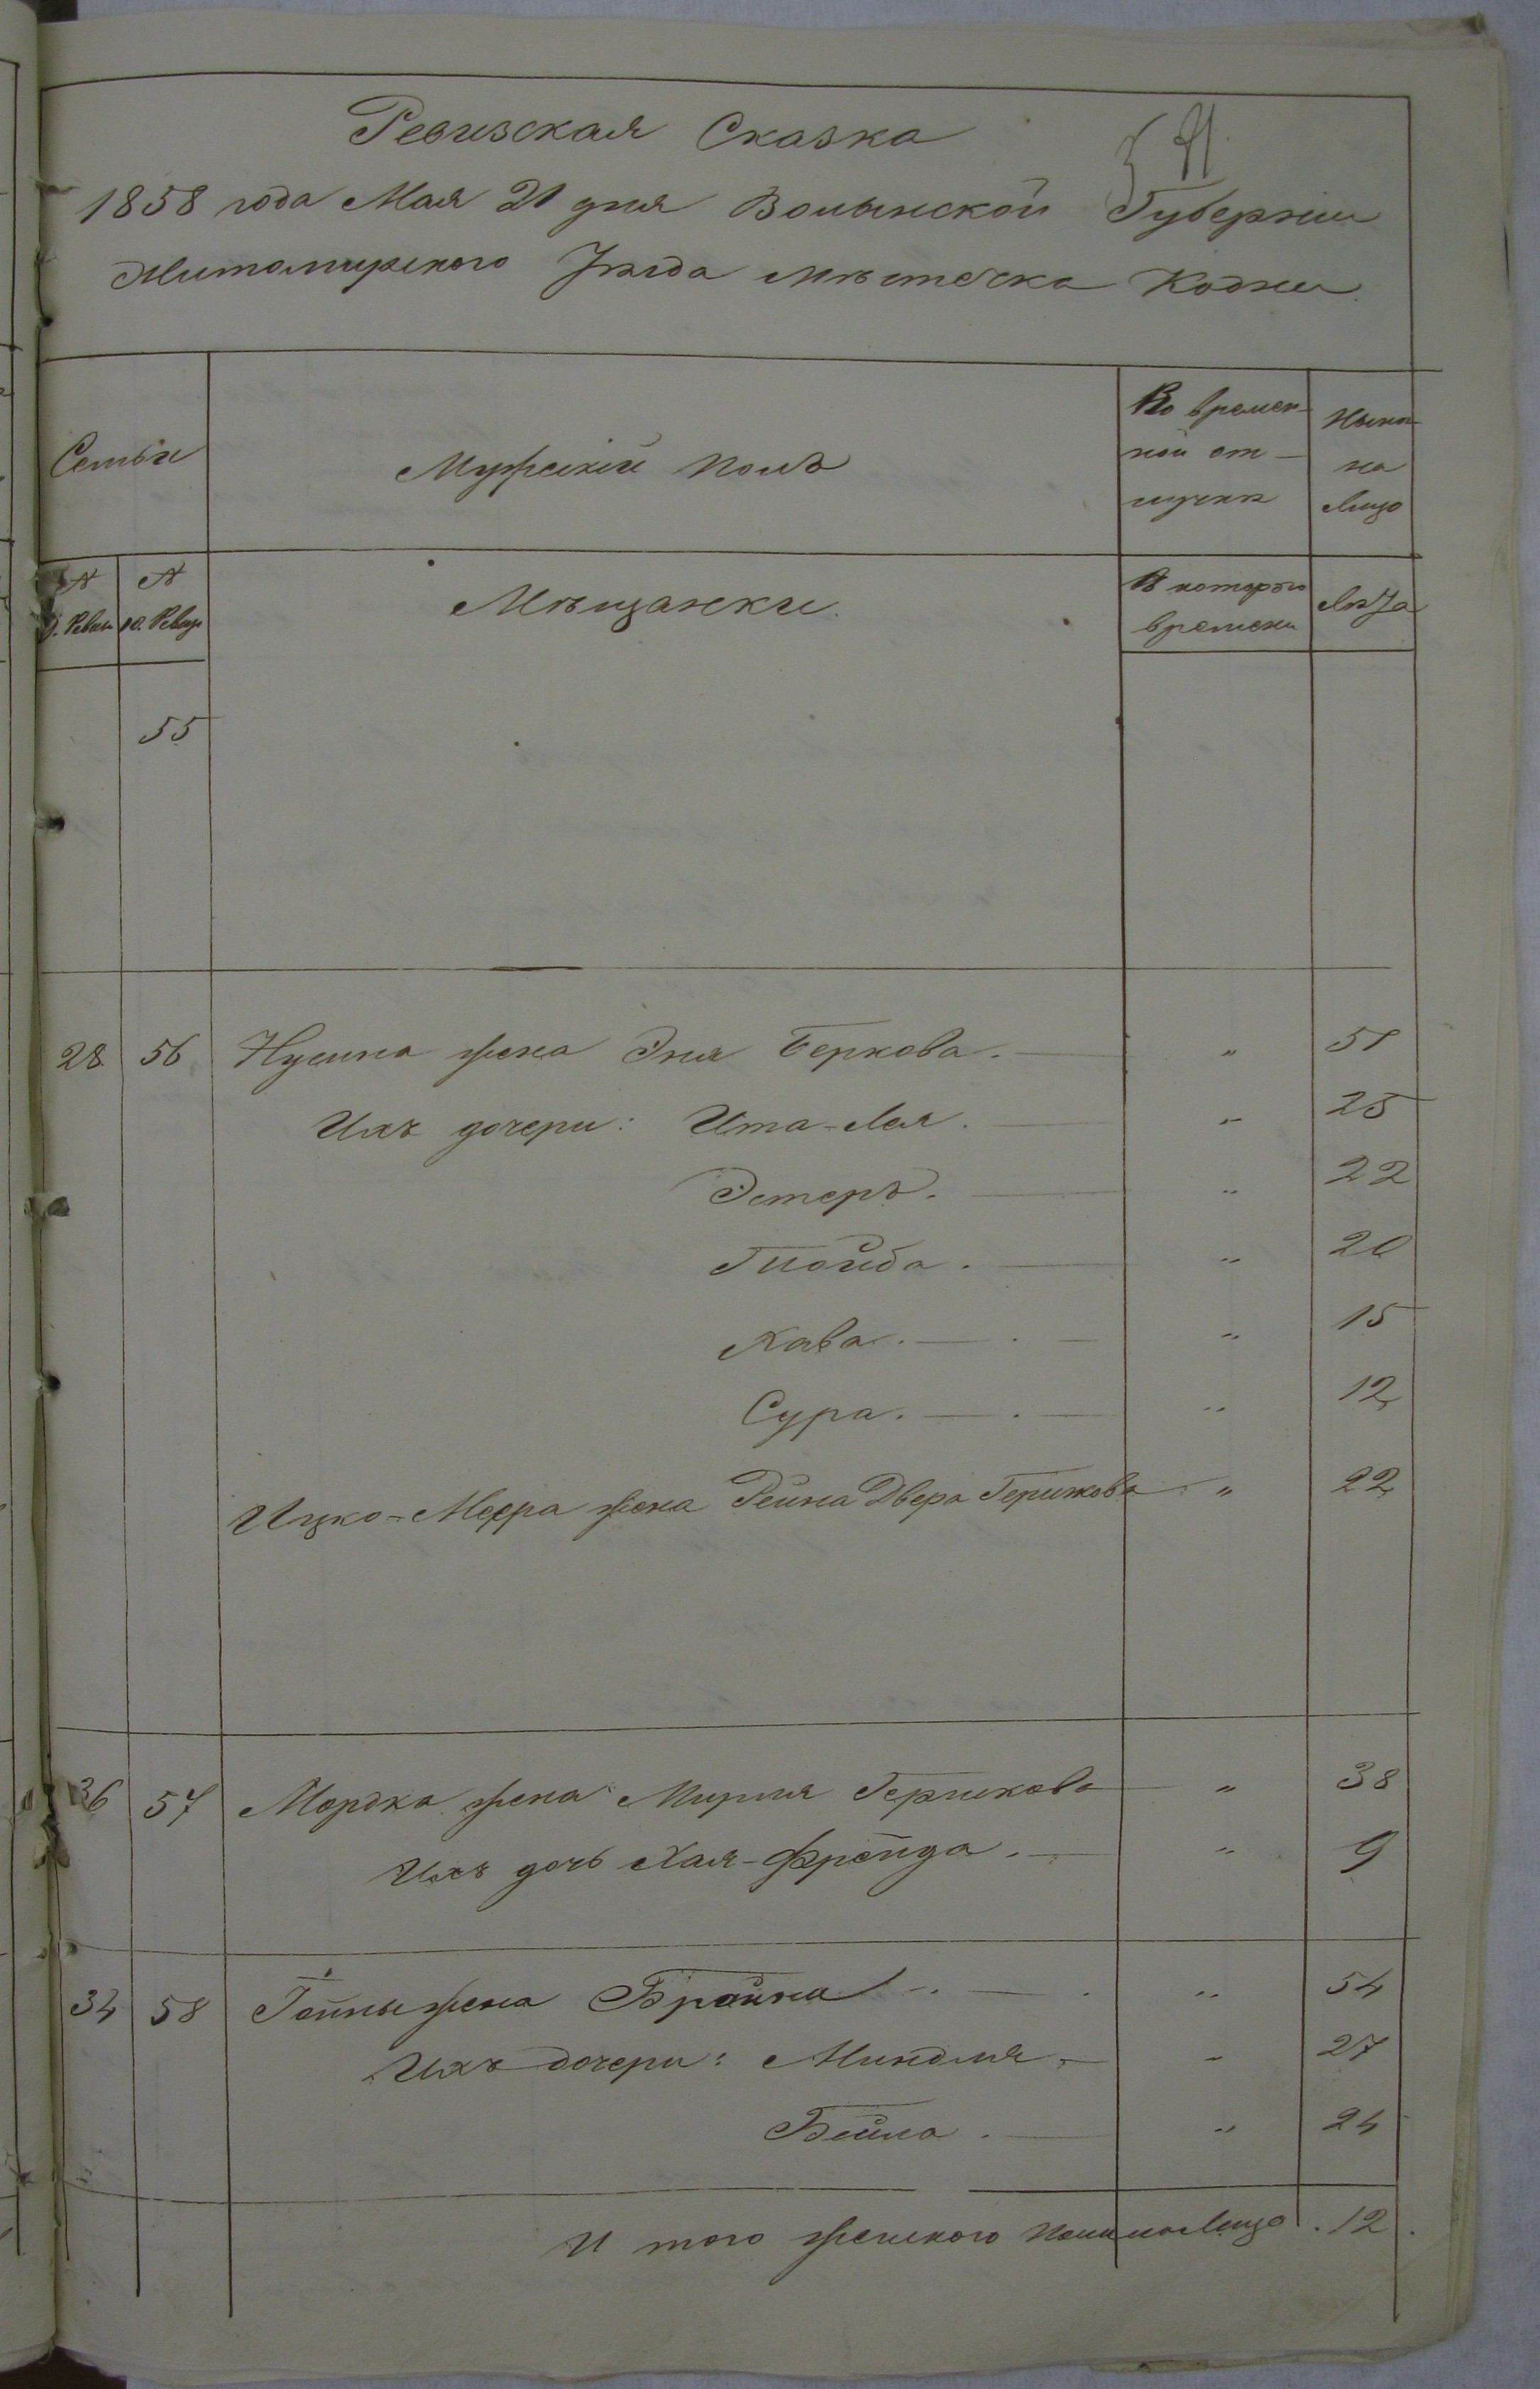 Ревизская Сказка
1858 года Мая 21 дня Волынской Губернии
Житомирского Уѣзда Мѣстечка Кодни
Семьи
Мужскій полъ
Во времен-
ной от-
лучкѣ
Нынѣ
на
Лицо
№
9. Ревиз
№
10. Ревиз
Мѣщанки.
Съ котораго
времени
Лѣта
55
28 56 Нусина жена Эня Беркова. " 51
Ихъ дочери: Ита-Лея. " 25
Эстеръ. " 22
Гнойда. " 20
Хава. " 15
Сура. " 12
Ицко-Меера жена Рейна Двера Гершкова " 22
36 57 Мордка жена Мирля Гершкова " 38
Ихъ дочь Хая-Фрейда. " 9
34 58 жена Брайна " 54
Ихъ дочери: Миндля. " 27
Бейла. " 24
И того женского пола на Лицо. 12.